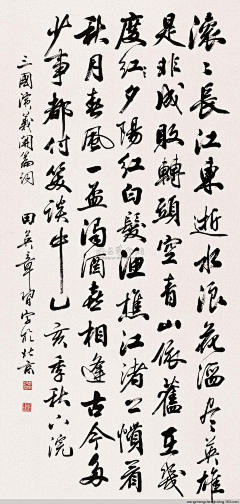 滚〻長江東逝水浪花淘尽英雄
是非成敗轉頭空青山依舊在幾
度紅夕陽紅白髮漁樵江渚上慣看
秋月春風一壺濁酒喜相逢古今多
少事都付笑談中乙亥季秋下浣
三國演義開篇詞 田英章寫於北京